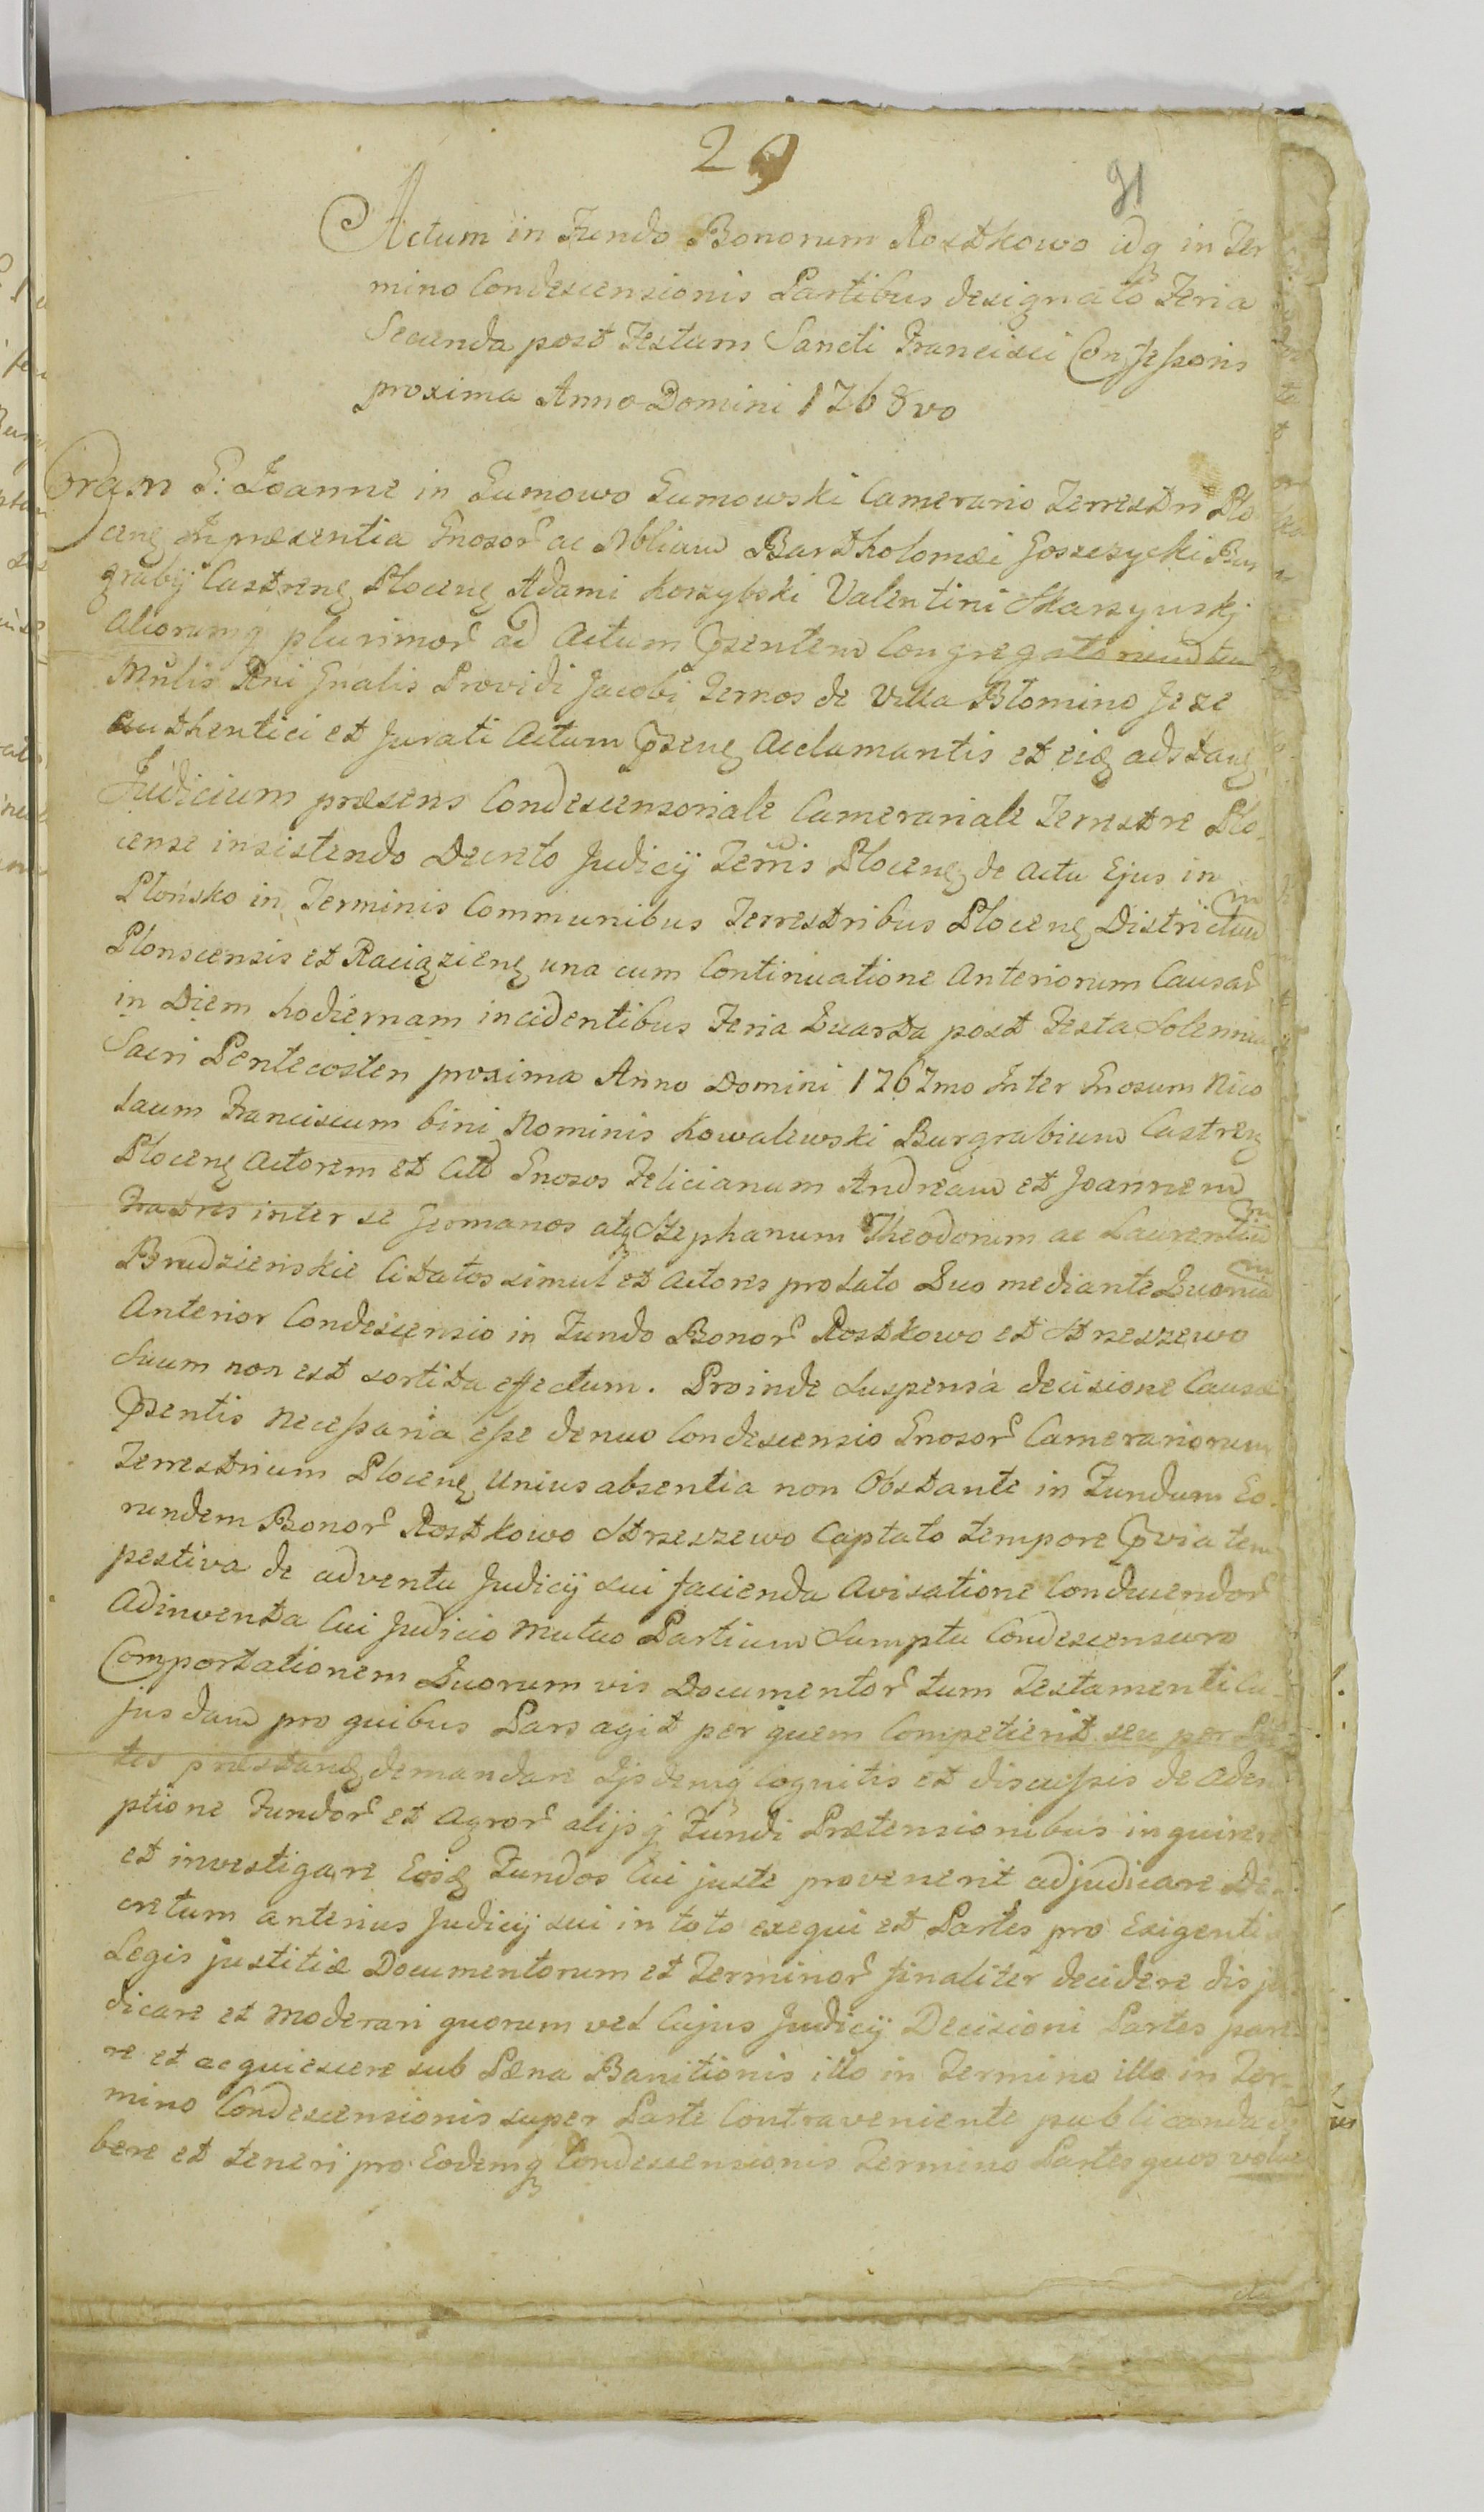 29
91
Actum in Fundo Bonorum Rostkowo idq in Ter
mino Condescensionis Partibus designato Feria
Secunda post Festum Sancti Francisci Confessoris
proxima Anno Domini 1768vo
Coram G: Joanne in Gumowo Gumowski Camerario Terrestri Plo
cens In praesentia Gnosor ac Nblium Bartholomaei Goszczycki Bur
grabij Castrens Plocens Adami Koszybski Valentini Skarzynskj
Aliorumq plurimor ad Actum psentem Congregatorum
Mnlis Rni Gnalis Providi Jacobi Ternos de Villa Blomino Jeze
authentici et Jurati Actum psens Acclamantis et eid adstans
Judicium praesens Condescensoriale Camerariale Terrestre Plo-
cense insistendo Decreto Judicij Terris Plocens de Actu Ejus in
Płońsko in Terminis Communibus Terrestribus Plocens Districtuum
Plonscensis et Raciąziens una cum Continuatione Anteriorum Causar
in Diem hodiernam incidentibus Feria Quarta post Festa Solennia
Sacri Pentecosten proxima Anno Domini 1767mo Inter Gnosum Nico
laum Franciscum bini Nominis Kowalewski Burgrabium Castrens
Plocens Actorem et Citt Gnosos Felicianum Andream et Joannem
Fratres inter se Germanos atq Stephanum Theodorum ac Laurentium
Brudzienskie Citatos simul et Actores pro lato Quo mediante Quoniam
Anterior Condescensio in Fundo Bonor Rostkowo et Strzeszewo
Suum non est sortita effectum. Proinde Suspensa decisione Causae
psentis necessaria esse denuo Condescensio Gnosor Camerariorum
Terrestrium Plocens Unius absentia non Obstante in Fundum Eo-
rundem Bonor Rostkowo Strzeszewo Captato tempore pvia tem
pestiva de adventu Judicij sui facienda Avisatione Conducendor
Adinventa Cui Judicio Mutuo Partium Sumptu Condescensuro
Comportationem Quorum vis Documentor tum Testamenti Cu-
jusdam pro quibus Pars agit per quem Competierit seu per Par
tes praestans demandare Ijsdemq Cognitis et discussis de Adem
ptione Fundor et Agror alijsq Fundi Praetensionibus inquirere
et investigare Eosq Fundos Cui juste provenerit adjudicare De-
cretum anterius Judicij sui in toto exequi et Partes pro Exigentia
Legis justitiae Documentorum et Terminor finaliter decidere disju
dicare et Moderari quorum vel Cujus Judicij Decisioni Partes pare-
re et acquiescere sub Paena Banitionis illo in Termino illo in Ter-
mino Condescensionis super Parte Contraveniente publicanda de
bere et teneri pro Eodemq Condescensionis Termino Partes quos